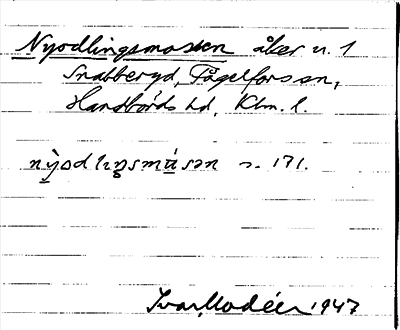 Nyodlingsmossen åker n. 1
Snabberyd, Fågelfors sn,
Handbörds hd, Klm. l.
nỳodlıŋsmásən s. 171.
Ivar Modéer 1947